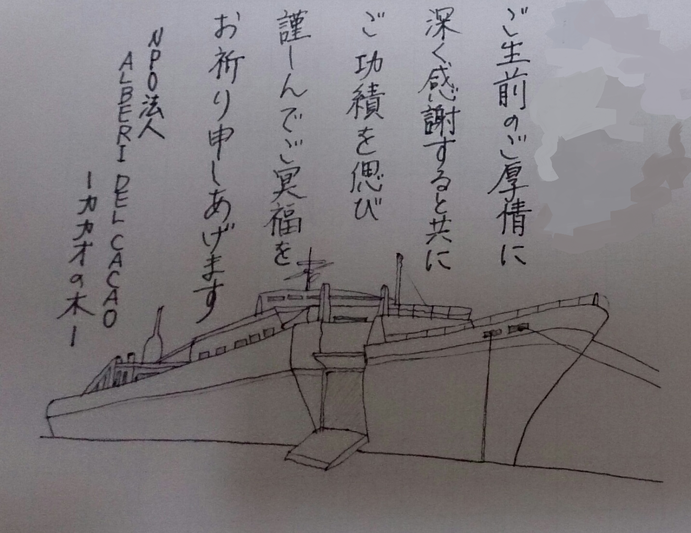 ご生前のご厚情に
深く感謝すると共に
ご功績を偲び
謹んでご冥福を
お祈り申しあげます
NPO法人
ALBERI DEL CACAO
ーカカオの木ー